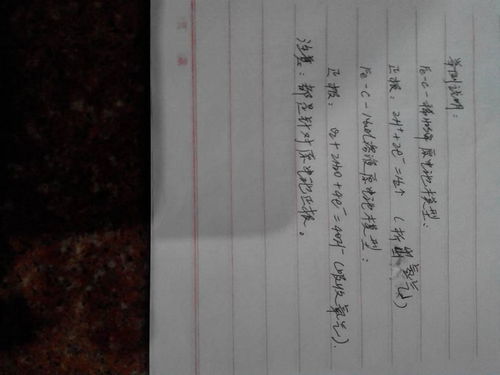 举例说明:
Fe-C-稀H2SO4 原电池模型:
正极: 2H⁺+2e⁻=H2↑ (析出氢气)
Fe-C-NaCl溶液原电池模型:
正极: O2+2H2O+4e⁻=4OH⁻ (吸收氧气).
注意: 都是针对原电池正极。